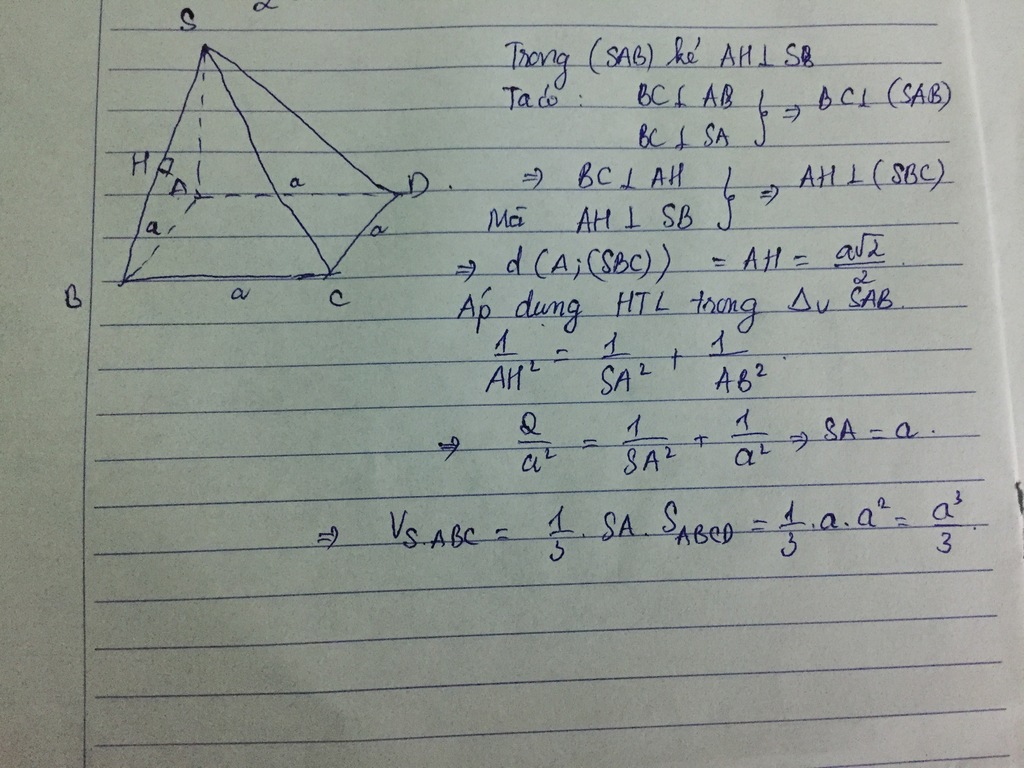 S
H
A
a
D
a
a
B
a
C
Trong (SAB) kẻ AH ⊥ SB
Ta có : BC ⊥ AB } ⇒ BC ⊥ (SAB)
BC ⊥ SA
⇒ BC ⊥ AH } ⇒ AH ⊥ (SBC)
Mà AH ⊥ SB
⇒ d (A; (SBC)) = AH = a√2/2
Áp dụng HTL trong Δv SAB.
1/AH² = 1/SA² + 1/AB².
⇒ 2/a² = 1/SA² + 1/a² ⇒ SA = a.
⇒ V_S.ABC = 1/3 . SA . S_ABCD = 1/3 . a . a² = a³/3.